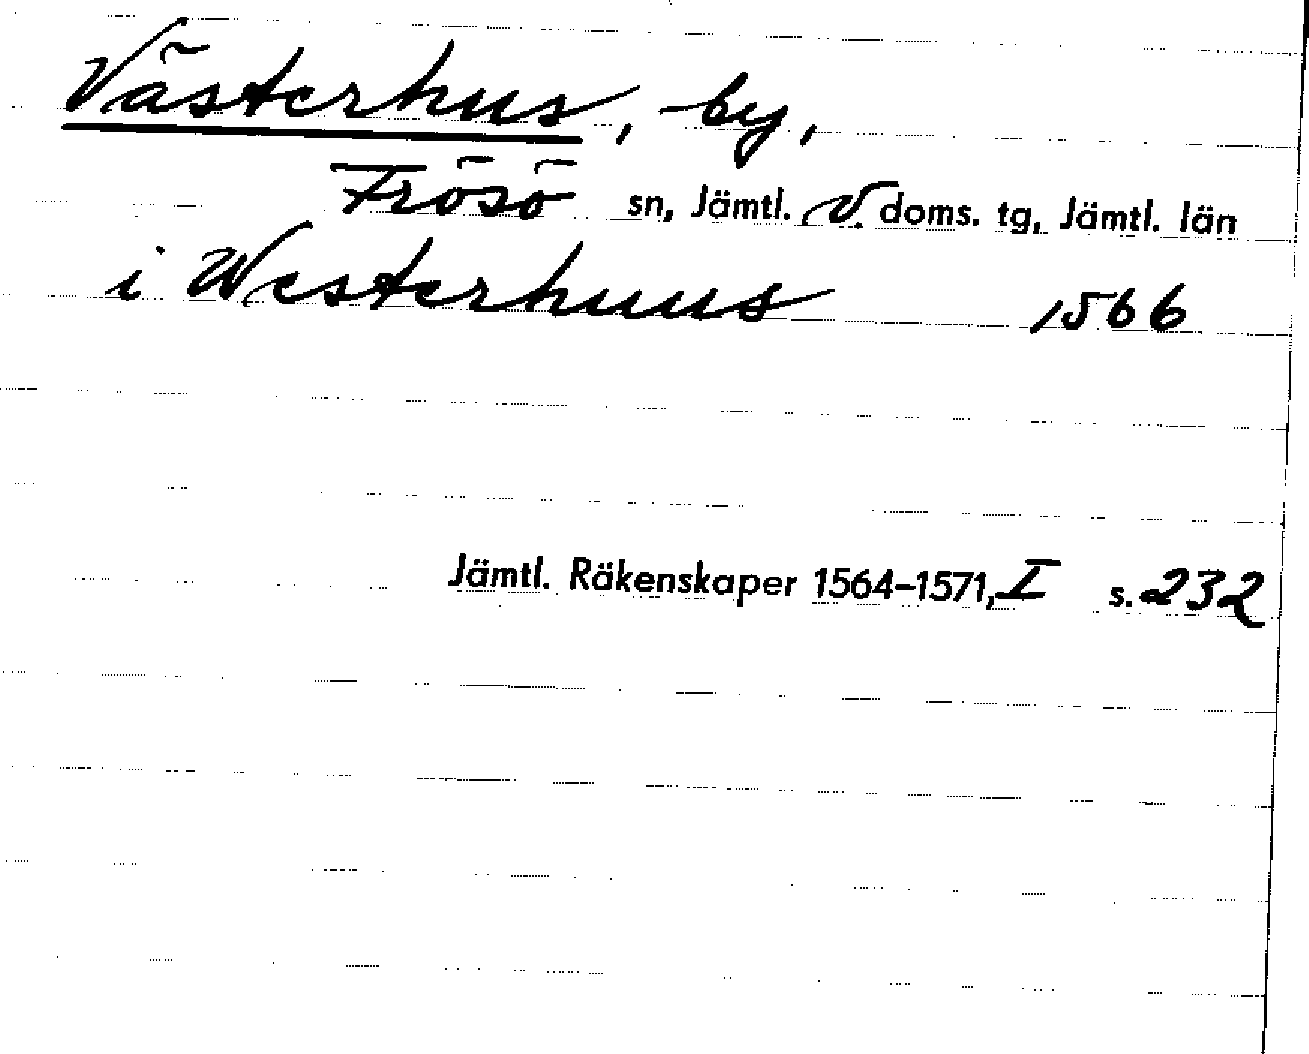 Västerhus, by,
Frösö sn, Jämtl. V. doms. tg, Jämtl. län
i Westerhuus 1566
Jämtl. Räkenskaper 1564-1571, I s. 232